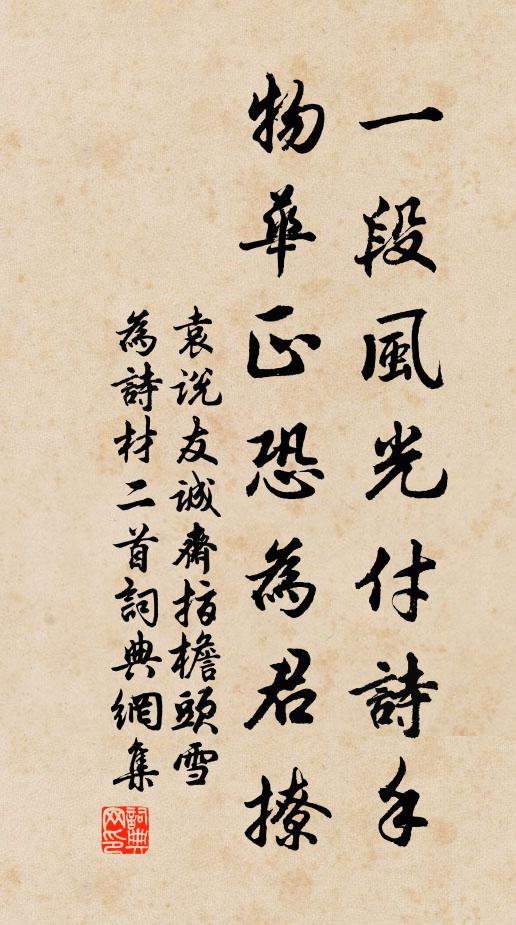 一段風光付詩手
物華正恐為君撩
袁说友誠齋指檐頭雪
為詩材二首詞典網集
詞典
网印